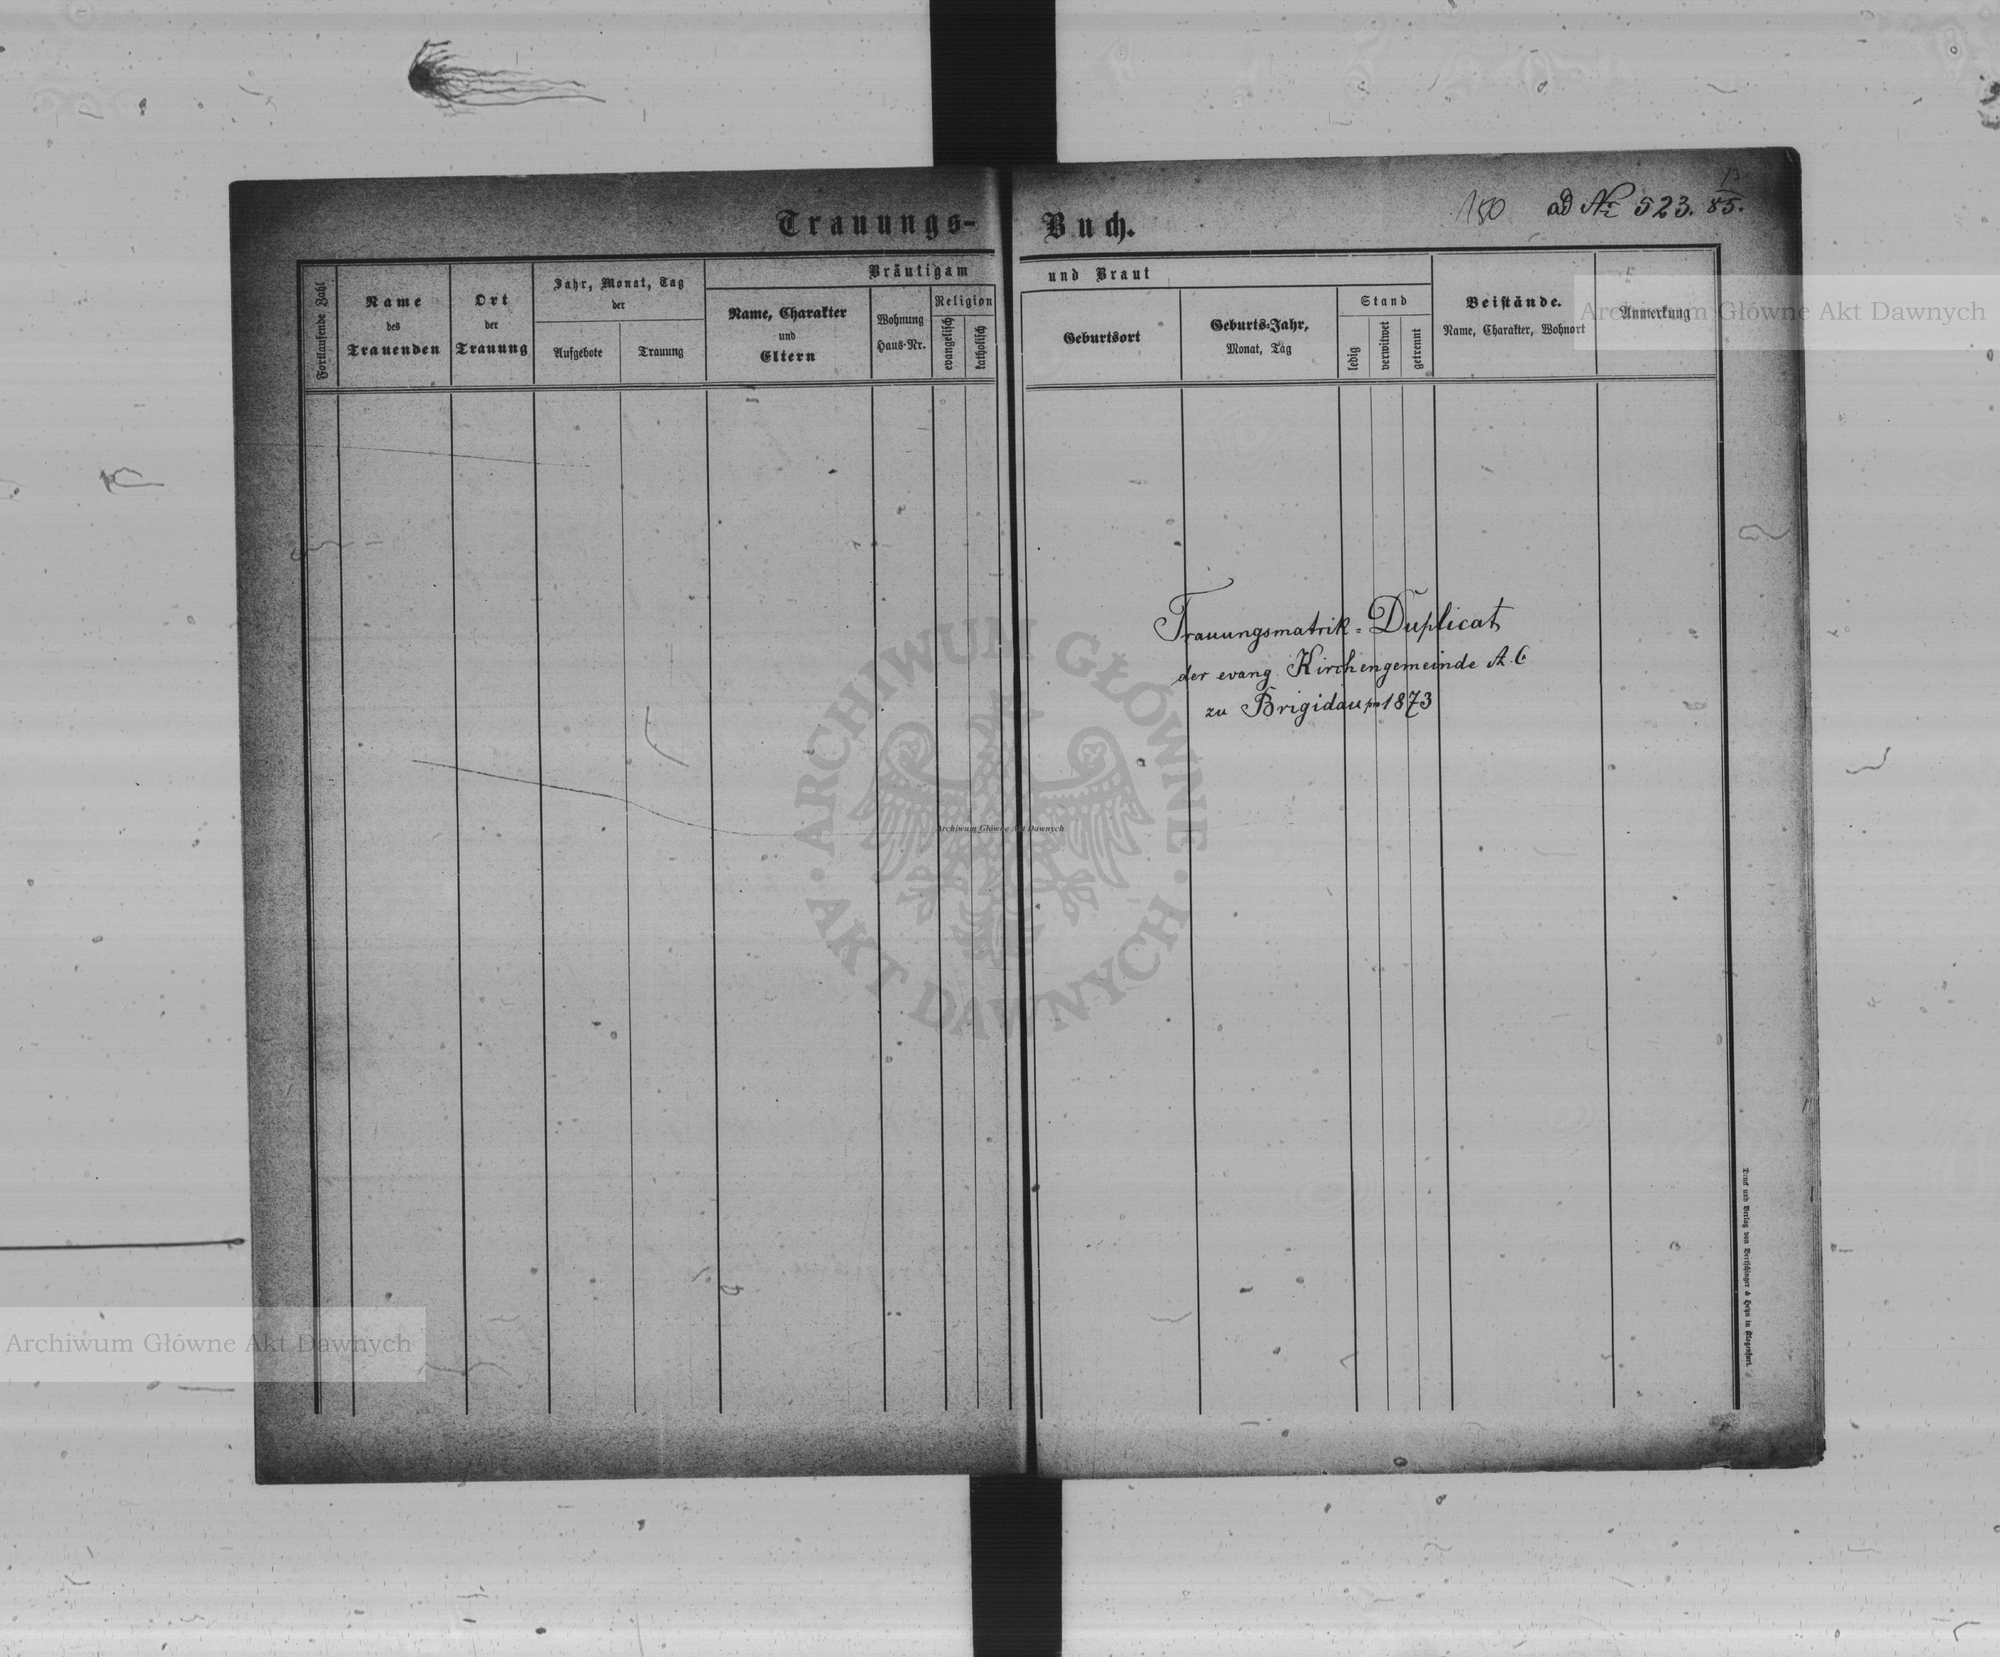 150 ad Nr 523. 13/85.
Trauungs- Buch.
Fortlaufende Zahl
Name
des
Trauenden
Ort
der
Trauung
Jahr, Monat, Tag
der
Aufgebote
Trauung
Bräutigam und Braut
Name, Charakter
und
Eltern
Wohnung
Haus-Nr.
Religion
evangelisch
katholisch
Geburtsort
Geburts-Jahr,
Monat, Tag
Stand
ledig
verwitwet
getrennt
Beistände.
Name, Charakter, Wohnort
Anmerkung
Archiwum Główne Akt Dawnych
Trauungsmatrik-Duplicat
der evang. Kirchengemeinde A. C.
zu Brigidau pro 1873
ARCHIWUM GŁÓWNE
AKT DAWNYCH
Archiwum Główne Akt Dawnych
Druck und Verlag von Bertschinger & Heyn in Klagenfurt.
Archiwum Główne Akt Dawnych